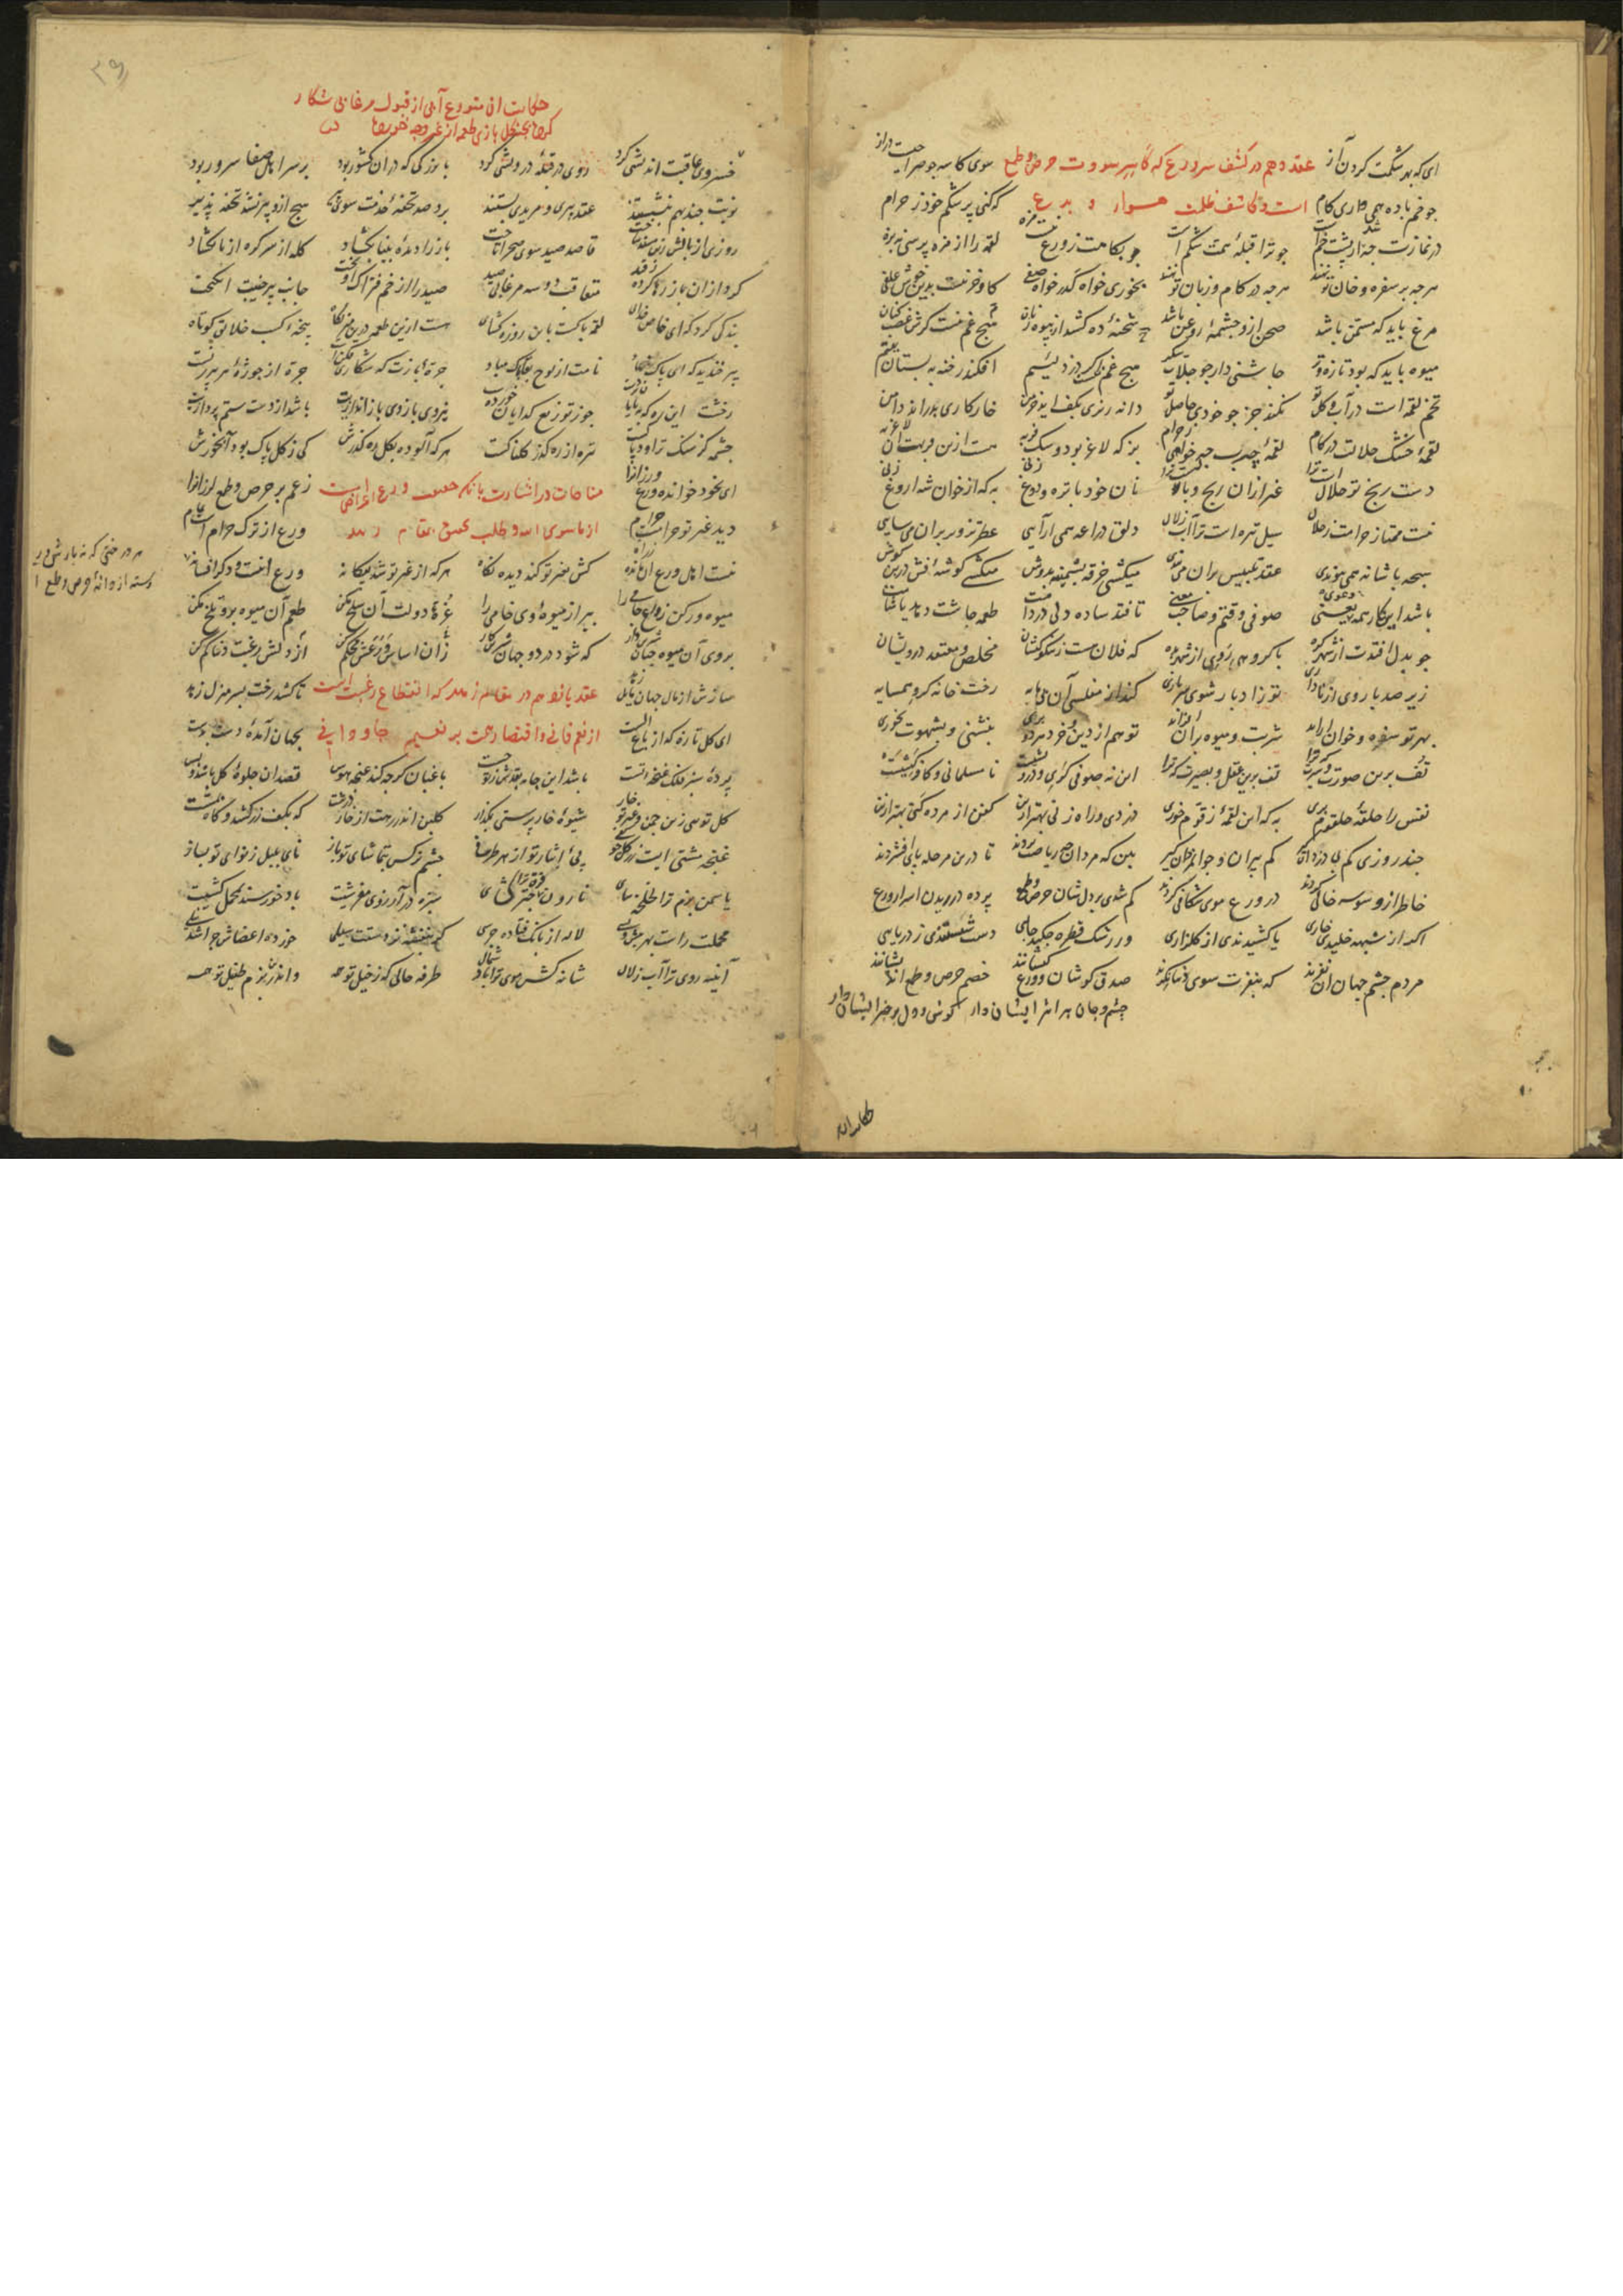 ای که بهر شکمت کردن آز عقد دهم در کشف سر ورع که کاسر سورت حرص و طمع سوی کاسه چو صراحیت دراز
چو خم باده همی داری کام است و کاشف ظلمت هوا و بدع که کنی پر شکم خود ز حرام
در نمازت چه ز ار پشت خم است چو ترا قبلهٔ همت شکم است چو بکامت ز ورع نیست مزه لقمه را از مزه پرسی نه بزه
هرچه بر سفره و خوان تو نهند هرچه در کام و زبان تو نهند بخوری خواه کدر خواه صفی کاو و خر نیست بدین خوش علفی
مرغ باید که مسمن باشد صحن ازو چشمهٔ روغن باشد شحنهٔ ده کشد از پیوه زنان هیچ غم نیست گرش غصب کنان
میوه باید که بود تازه و تر چاشنی دار چو جلاب شکر هیچ غم نیست اگر دزد لئیم افکند رخنه به بستان یتیم
تخم لقمه است در آب و گل تو نکند جز چو خودی حاصل تو دانه ریزی بکف اید خرمن خار کاری بدرد از دامن
لقمهٔ خشک حلالت در کام لقمهٔ چرب چه خواهی ز حرام بز که لاغر بود و سگ فربه هست ازین فربهت آن لاغر به
دست رنج تو حلال است ترا غیر ازان رنج و وبال است ترا نان خود با تره و دوغ زنی به که از خوان شه اروغ زنی
نیست ممتاز حرامت ز حلال سیل تیره است ترا آب زلال دلق دراعه همی ارآیی عطر تزویر بران می سایی
سبحه با شانه همی پیوندی عقد تلبیس بران می بندی میکشی خرقه پشمینه بدوش میکنی گوشهٔ فش درین گوش
باشد این کار همه یعنی دعوی صوفی وقتم و صاحب معنی تا فتد ساده دلی در دامت طعمه چاشت دهد یا شامت
چو بدل افتدت از شهر گره با گروهی روی از شهر بده که فلان هست ز نیکو کیشان مخلص و معتقد درویشان
زیر صد بار روی از نادانی تو زاد بار شوی سر باری کند از مفلسی آن بی مایه رخت خانه گرو همسایه
بهر تو سفره و خوان اراید شربت و میوه بران افزاید تو هم از دین و خرد هر دو بری بنشینی و بشهوت بخوری
تف برین صورت و سیرت که ترا تف برین عقل و بصیرت که ترا این نه صوفی گری و درویشیست نامسلمانی و کافر کیشیست
نفس را حلقه حلقوم بری به که این لقمهٔ زقوم خوری دزدی و راه زنی بهتر ازین کفن از مرده کنی بهتر ازین
چند روزی کم بی دردان گیر کم پیران و جوانمردان گیر بین که مردان چه ریاضت بردند تا درین مرحله پای افشردند
خاطر از وسوسه خالی کردند در ورع موی شکافی کردند کم شدی بر دلشان حرص و طمع پرده در دیدن اسرار ورع
اگر از شبهه خلیدی خاری یا کشیدندی از گلزاری ور رشک قطره چکیدی جایی دست شستندی ز دریایی
مردم چشم جهان ان نفرند که بنفرت سوی دنیا نگرند صدق کوشان و ورع کیشانند خصم حرص و طمع اندیشانند
چشم و جان بر اثر ایشان دار گوش و دل بر خبر ایشان دار
حکایت
۳۹
حکایت ان متورع آبی از قبول مرغابی شکار
کرده بچنگل بازی طعمه از غیر وجه خورده
خسروی عاقبت اندیشی کرد روی در قبله درویشی کرد با بزرگی که دران کشور بود بر سر اهل صفا سرور بود
نوبتی چند بهم بنشستند عقد پیری و مریدی بستند برد صد تحفه خدمت سوی پیر هیچ ازو پیر نشد تحفه پذیر
روزی از بالش زین مسند ساخت قاصد صید سوی صحرا تاخت باز را دیدهٔ بینا بگشاد کله از سر گره از پا بگشاد
کرد ازان باز رها کرده ز قید متعاقب دو سه مرغابی صید صید را از خم فتراک آویخت جانب پیر خجسته انگیخت
بندگی کرد که ای خاص خدای لقمه پاکست باین روزه گشای هست ازین طعمه درین منزلگاه پنجه کسب خلایق کوتاه
پیر خندید که ای پاک نهاد نامت از لوح بقا پاک مباد جرهٔ بازت که شکاری فکن است جره از جوزهٔ هر پیرزن است
رخشت این ره که بپایان برده جو ز توزیع گدایان خورده نیروی بازوی بازاندازت باشد از دست ستم پردازت
چشمه گر سنگ تراود پاکست تیره از ره گذر گلناکست هرکه آلوده بگل ره گذرش کی ز گل پاک بود آبخورش
ای بخود خوانده ورع ورزانرا مناجات در اشارت بآنکه حقیقت ورع اعراض است زعم بر حرص و طمع لرزانرا
دید غیر تو حرام است حرام از ماسوی الله و طلب تحقق بمقام زهد ورع از ترک حرام است تمام
نیست اهل ورع ان فرزانه کش بغیر تو کند دیده نگاه هرکه از غیر تو شد بیگانه ورع انست و دگر افسانه
میوه ورکن ز ورع جامی را ببر از میوهٔ وی خامی را غرهٔ دولت آن سلخ مکن طعم آن میوه برو تلخ مکن
بروی آن میوه چنان شیرین دار که شود در دو جهان شیرین کار زان اساس ورعش محکم کن از دلش رغبت دنیا کم کن
سازش از مال جهان مایل زهد عقد یازدهم در مقام زهد که انقطاع رغبت است تا کشد رخت بسر منزل زهد
ای گل تازه که از باغ الست از نعم فانی و اقتصار همت بر نعیم جاودانی بجهان آمدهٔ دست بدست
پردهٔ سبز فلک غنچه تست باشد این جامه بقد تو درست باغبان گرچه کند غنچه هوس قصد ان جلوهٔ گل باشد و بس
گل توهی زین چمن و غیر تو خار شیوهٔ خار پرستی بگذار گلبن اندر رهت از خار درشت که بکف زر کشد و گاه بمشت
غنچه مشتی است زر گل در وی پی ایثار تو از هر طرفی چشم نرگس بتماشای تو باز نای بلبل ز نوای تو بساز
یاسمن بزم ترا خلخه سای نارون فرق ترا چتر گشای سبزه در آرزوی مفرشیت باد خورسند بمحمل کشیت
محملت راست بهر بیش و پسی لاله از بانگ فتاده جرسی گر بنفشه نزدت سیلی خورده اعضاش چرا شد نیلی
آینه روی ترا آب زلال شانه کش موی ترا باد شمال طرفه حالی که ز خیل تو همه و اندرین بزم طفیل تو همه
هر درختی که نه بارش ورع
رسته از دانهٔ حرص و طمع ا